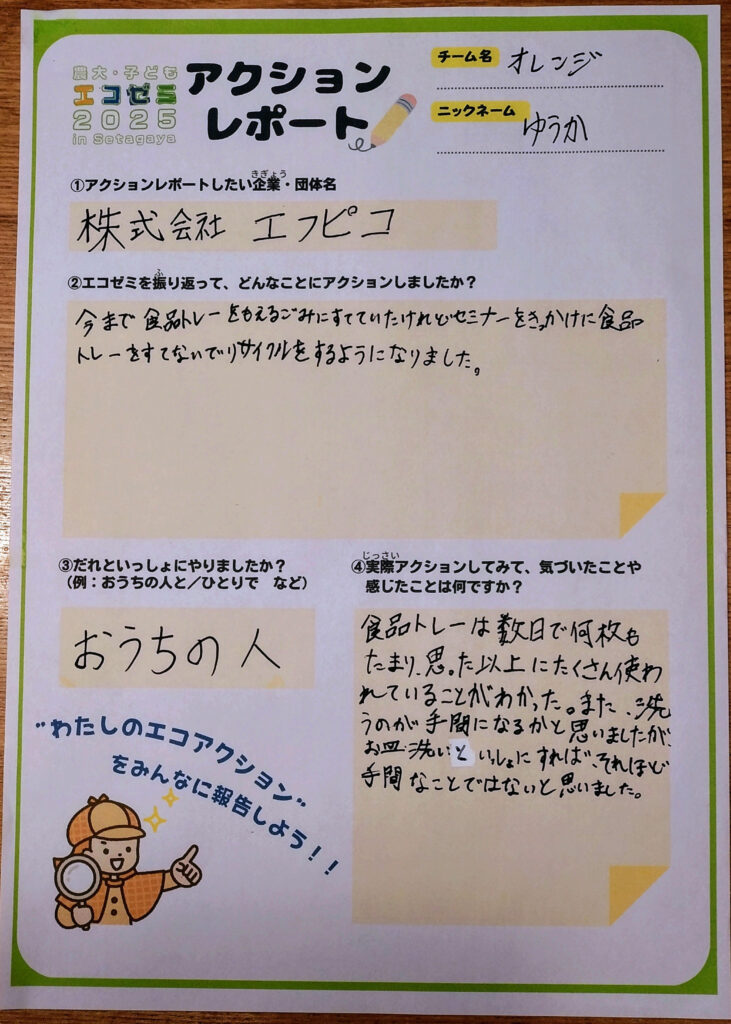 農大・子ども
エコゼミ
2025
in Setagaya
アクション
レポート
チーム名 オレンジ
ニックネーム ゆうか
きぎょう
①アクションレポートしたい企業・団体名
株式会社 エフピコ
ふ
②エコゼミを振り返って、どんなことにアクションしましたか？
今まで食品トレーをもえるごみにすてていたけれどセミナーをきっかけに食品
トレーをすてないでリサイクルをするようになりました。
③だれといっしょにやりましたか？
（例：おうちの人と／ひとりで など）
おうちの人
じっさい
④実際アクションしてみて、気づいたことや
感じたことは何ですか？
食品トレーは数日で何枚も
たまり、思った以上にたくさん使わ
れていることがわかった。また、洗
うのが手間になるかと思いましたが、
お皿洗いといっしょにすれば、それほど
手間なことではないと思いました。
"わたしのエコアクション"
をみんなに報告しよう！！